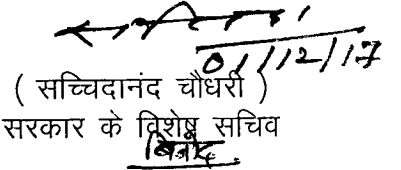 01/12/17
( सच्चिदानंद चौधरी )
सरकार के विशेष सचिव